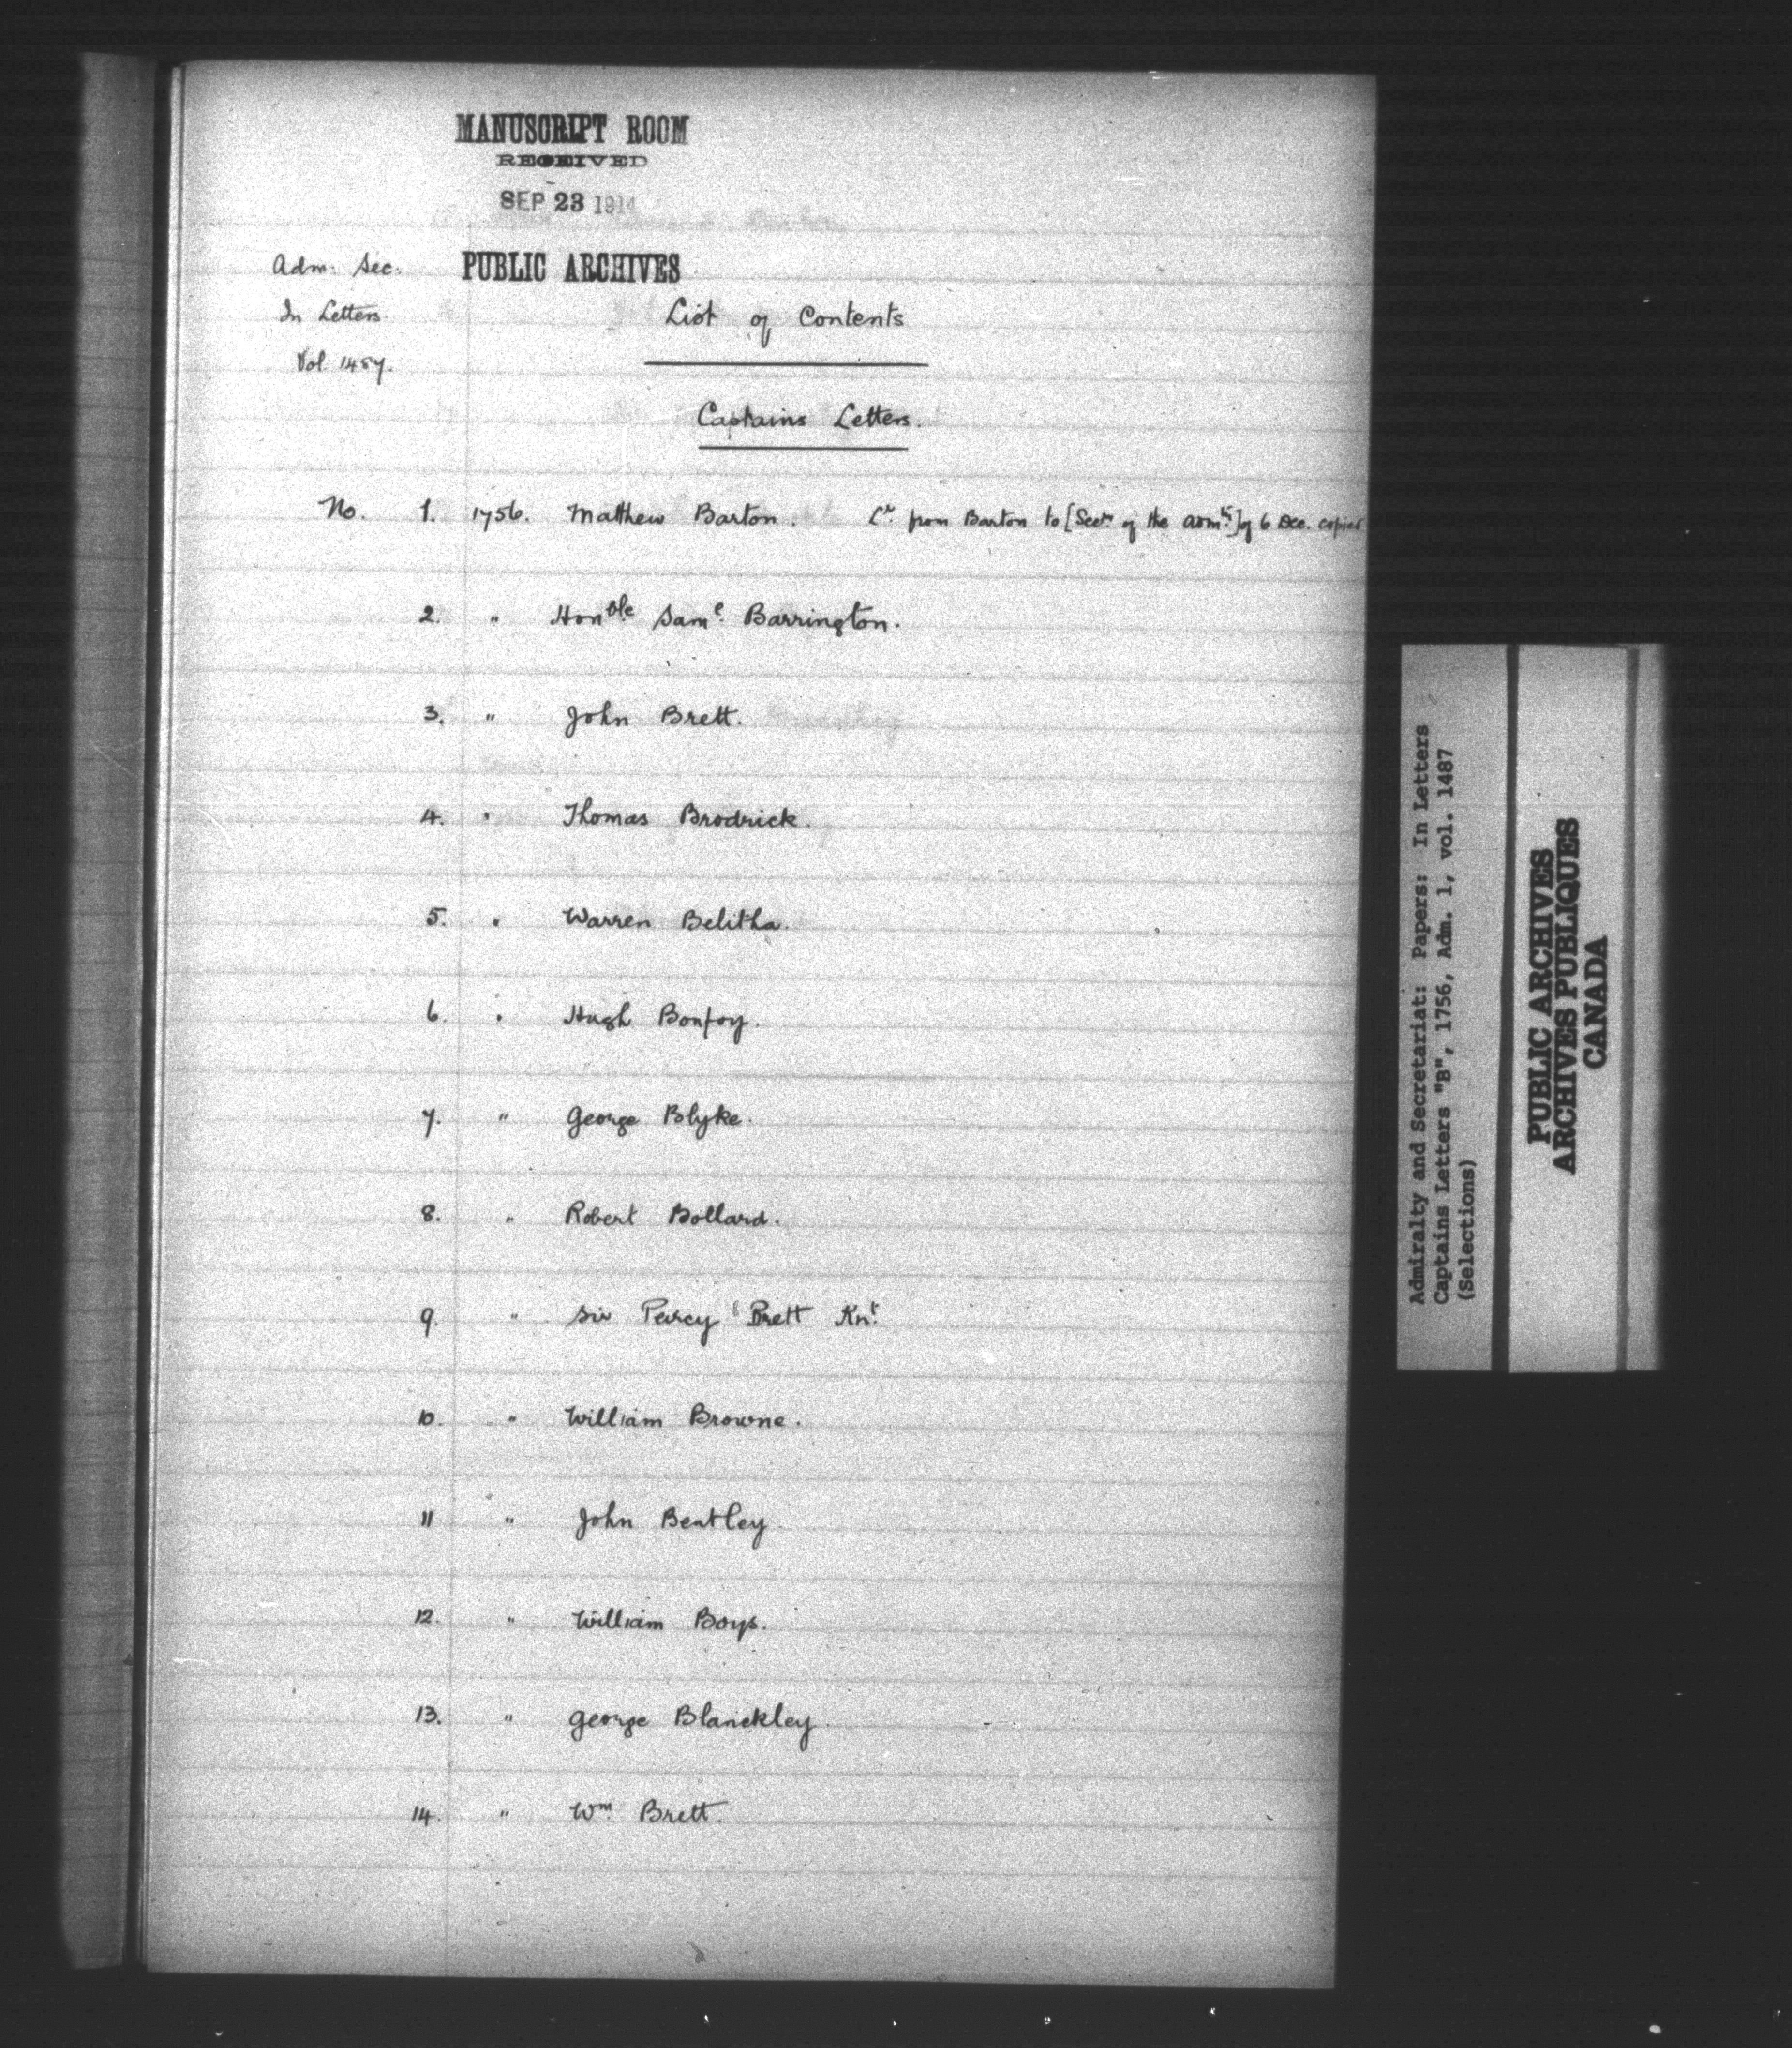 MANUSCRIPT ROOM
RECEIVED
SEP 23 1914
PUBLIC ARCHIVES
Adm: Sec.
In Letters
Vol. 1487.
List of Contents
Captains Letters.
No. 1. 1756. Matthew Barton. Lr. from Barton to [Secty. of the Admty.] of 6 Dec. copied
2. " Honble Saml. Barrington.
3. " John Brett.
4. " Thomas Brodrick.
5. " Warren Belitha.
6. " Hugh Bonfoy.
7. " George Blyke.
8. " Robert Bollard.
9. " Sir Peircy Brett Knt.
10. " William Browne.
11 " John Bentley
12. " William Boys.
13. " George Blanckley.
14. " Wm. Brett.
Admiralty and Secretariat: Papers: In Letters
Captains Letters "B", 1756, Adm. 1, vol. 1487
(Selections)
PUBLIC ARCHIVES
ARCHIVES PUBLIQUES
CANADA